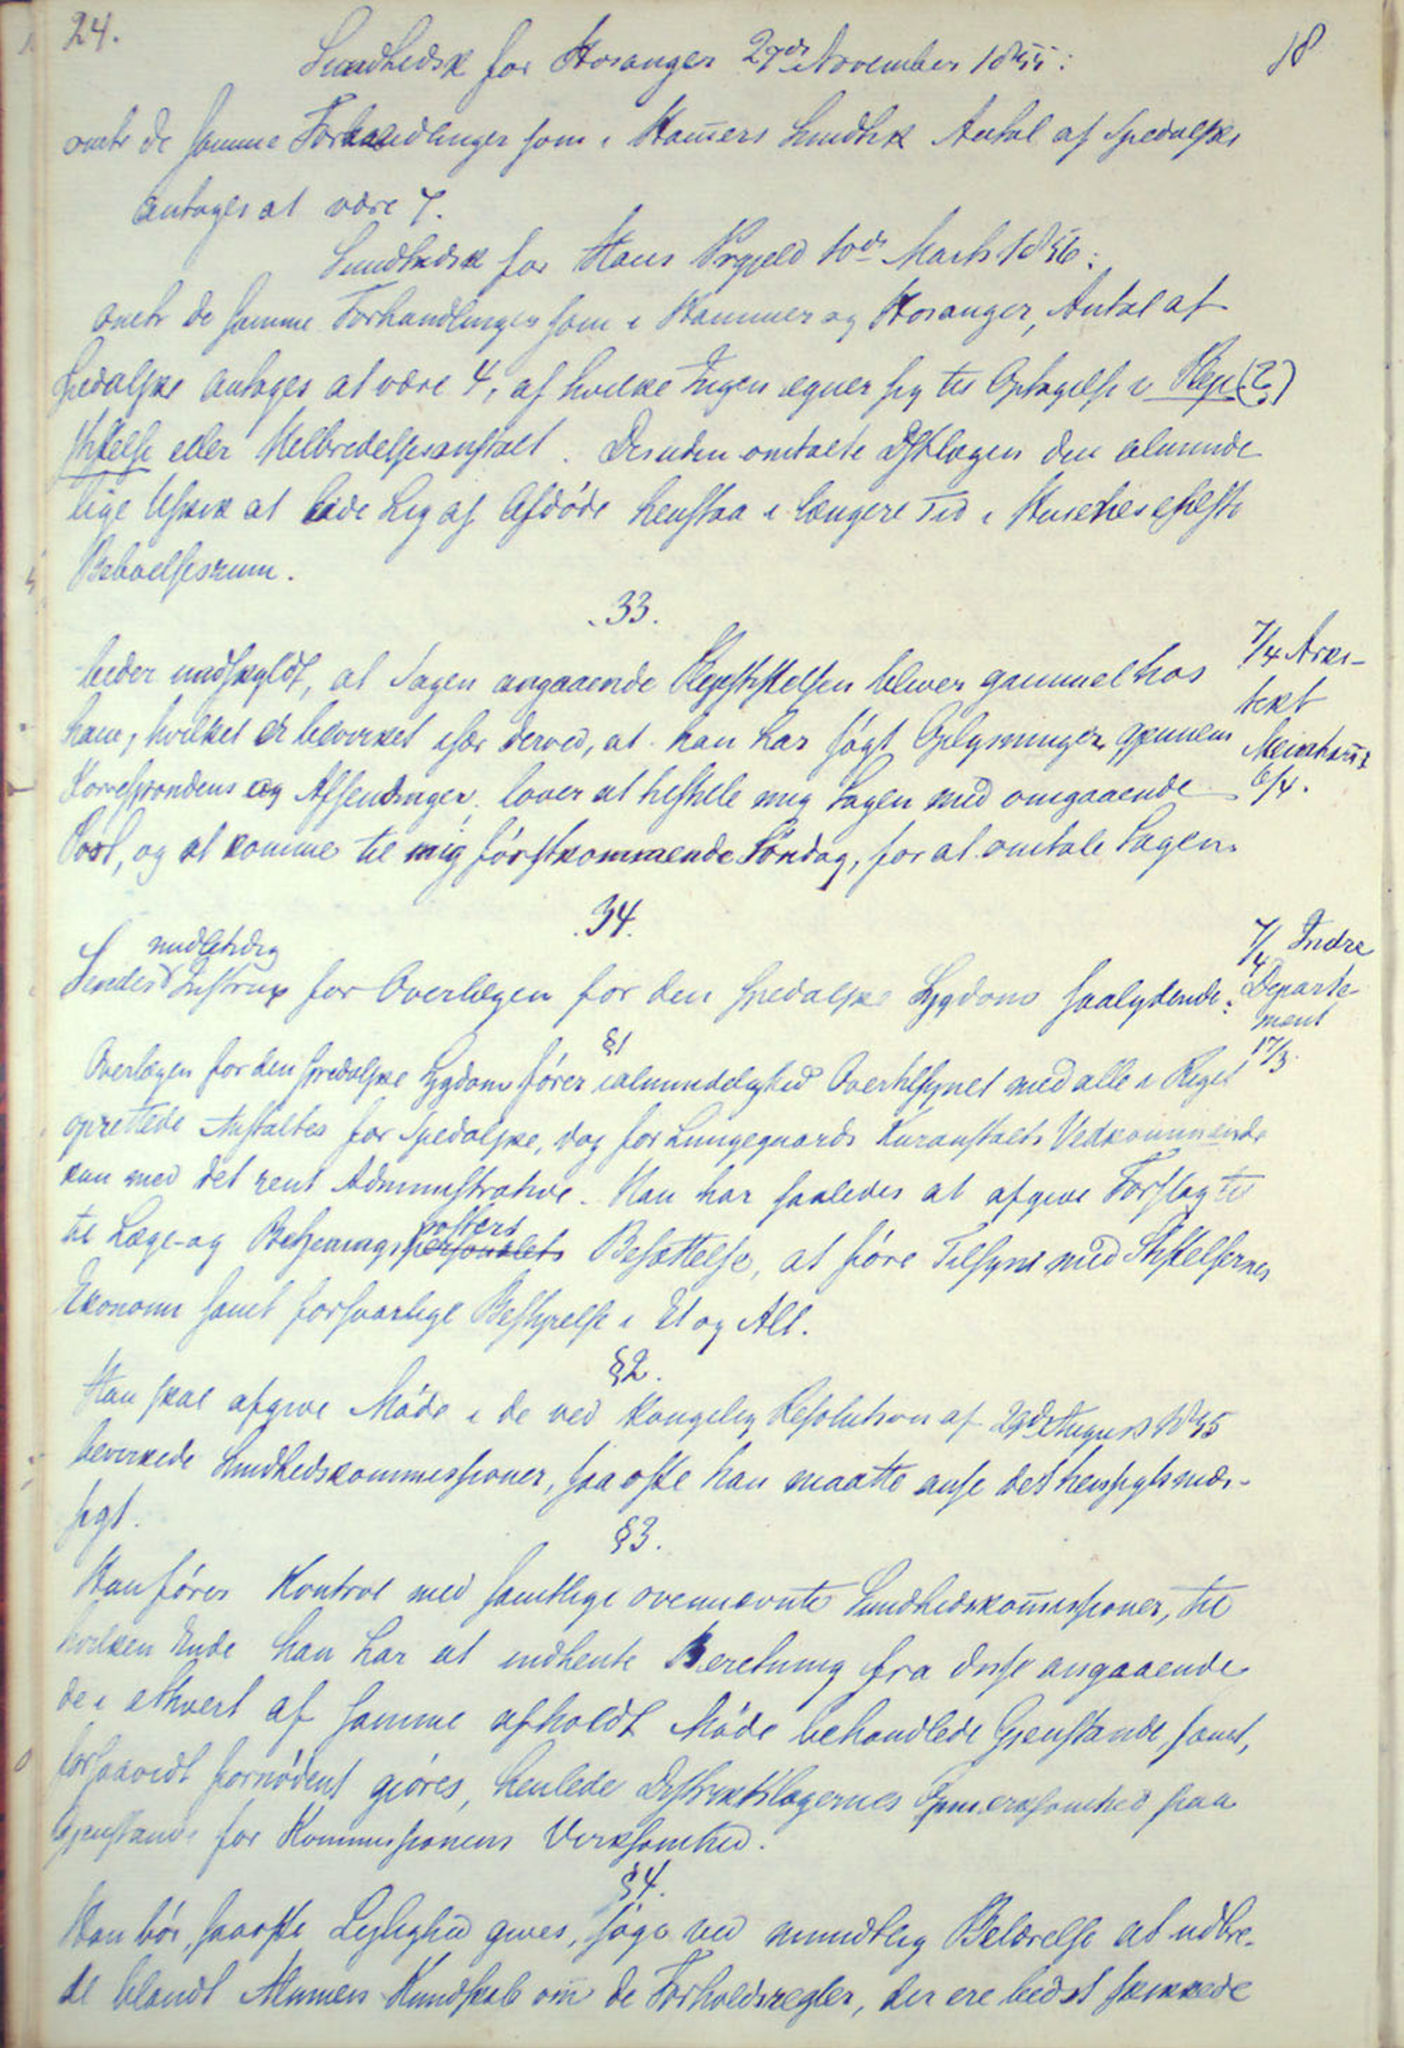 24.
18
Sundhedsk for Hosanger 27de November 1855:
omtr de samme Forhandlinger som i Hamers Sundhk Antal af Spedalske
antages at være 7.
Sundhedsk for Haus Prgjeld 10de Marts 1856:
omtr de samme Forhandlinger som i Hammer og Hosanger, Antal af
Spedalske antages at være 4, af hvilke Ingen egner sig til Optagelse i Pleje(?)
stiftelse eller Helbredelsesanstalt. Desuden omtalte Dstlægen den alminde
lige Uskik at lade Lig af Afdøde henstaa i længere Tid i Husenes
Beboelsesrum.
33.
beder undskyldt, at Sagen angaaende Plejestiftelsen bliver gammel hos
ham, hvilket er bevirket især derved, at han har søgt Oplysninger gjennem
Korrespondens og Affendinger, lover at tilstille mig Sagen med omgaaende
Post, og at komme til mig førstkommende Søndag, for at omtale Sagen.
7/4 Arki-
tekt
6/4.
34.
medfølgende
Sendes Instrux for Overlægen for den spedalske Sygdom saalydende:
7/4 Indre
Departe-
ment
17/3.
§1
Overlægen for den spedalske Sygdom fører i almindelighed Overtilsynet med alle i Riget
oprettede Anstalter for Spedalske, dog for Lungegaards Kuranstalts Vedkommende
kun med det rent Administrative. Han har saaledes at afgive Forslag til
posters
til Læge- og Betjenings personalets Besættelse, at føre Tilsyn med Stiftelsernes
Ekonomi samt forsvarlige Bestyrelse i Et og Alt.
§2.
Han skal afgive Møde i de ved Kongelig Resolution af 29de August 1855
bevirkede Sundhedskommissioner, saa ofte han maatte anse det hensigtsmæs-
sigt.
§3.
Han fører Kontrol med samtlige ovennævnte Sundhedskomissioner, til
hvilken Ende han har at indhente Beretning fra disse angaaende
de i ethvert af samme afholdt Møde behandlede Gjenstande, samt,
forsaavidt fornødent gjøres, henlede Distriktslægernes Opmerksomhed paa
Gjenstande for Kommissionens Virksomhed.
§4.
Han bør, saaofte Leilighed gives, søge ved mundtlig Belærelse at udbre-
de blandt Almuen Kundskab om de Forholdsregler, der ere bedst skikkede